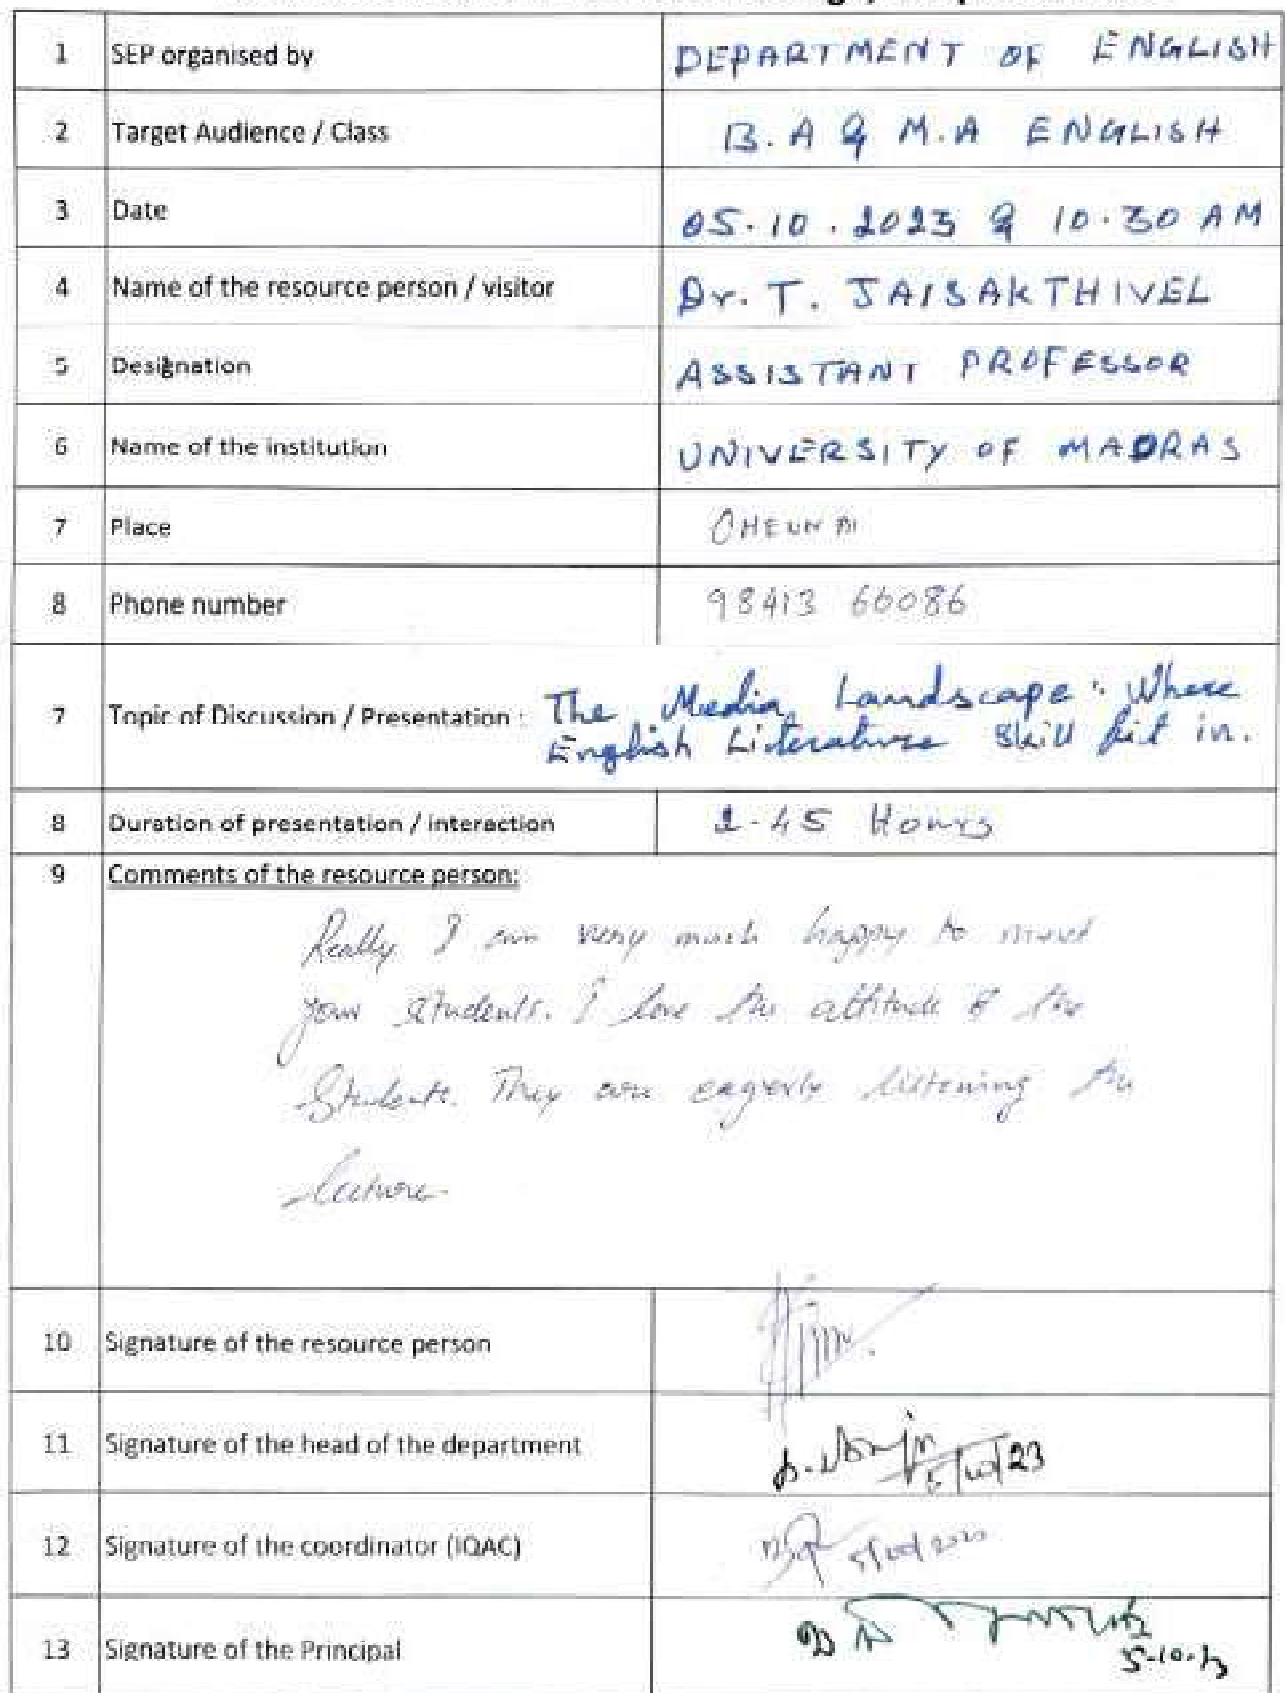 1 SEP organised by DEPARTMENT OF ENGLISH
2 Target Audience / Class B.A & M.A ENGLISH
3 Date 05.10.2023 & 10.30 AM
4 Name of the resource person / visitor Dr. T. JAISAKTHIVEL
5 Designation ASSISTANT PROFESSOR
6 Name of the institution UNIVERSITY OF MADRAS
7 Place CHENNAI
8 Phone number 98413 66086
7 Topic of Discussion / Presentation : The Media Landscape : Where
English Literature Skill fit in.
8 Duration of presentation / interaction -45 Hours
9 Comments of the resource person:
Really I am very much happy to
your students. I love the attitude of the
Students. They are eagerly listening the
lecture
10 Signature of the resource person
11 Signature of the head of the department 5/10/23
12 Signature of the coordinator (IQAC)
13 Signature of the Principal
5-10-23